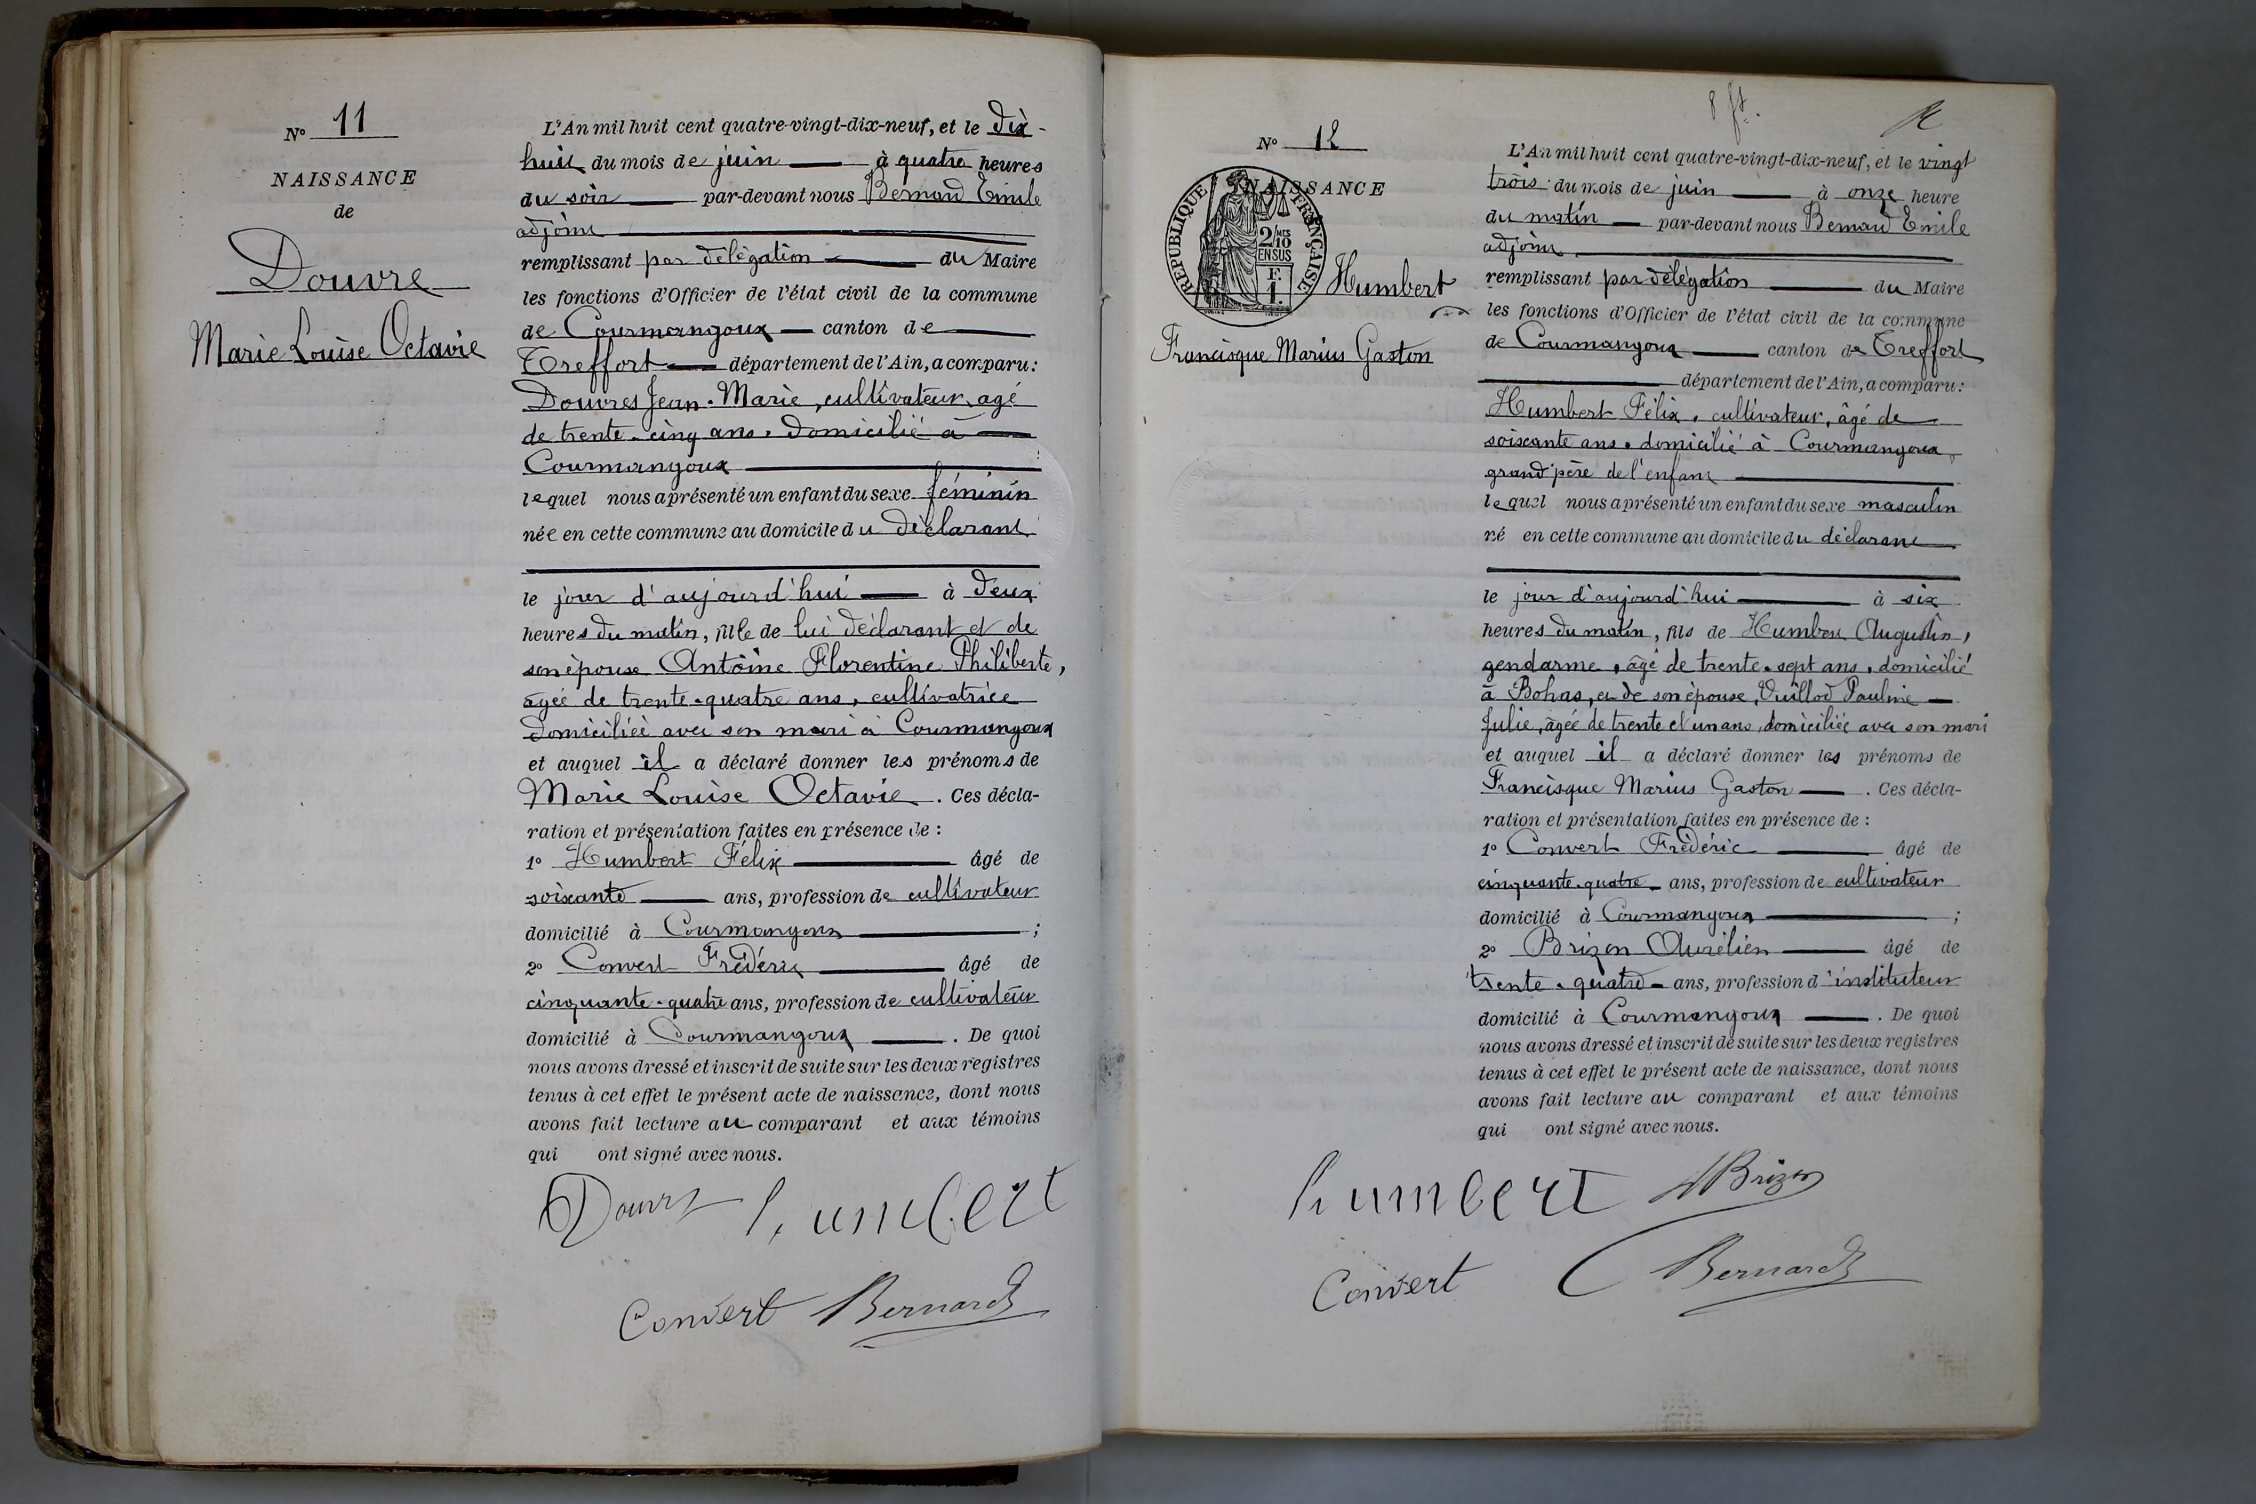 N° 11
NAISSANCE
de
Douvre
Marie Louise Octavie
L'An mil huit cent quatre-vingt-dix-neuf, et le dix-
huit du mois de juin à quatre heures
du soir par-devant nous Bernard Emile
adjoint
remplissant par délégation du Maire
les fonctions d'Officier de l'état civil de la commune
de Courmangoux canton de
Treffort département de l'Ain, a comparu:
Douvres Jean-Marie, cultivateur, agé
de trente-cinq ans, domicilié à
Courmangoux
lequel nous a présenté un enfant du sexe féminin
née en cette commune au domicile du déclarant
le jour d'aujourd'hui à deux
heures du matin, fille de lui déclarant et de
son épouse Antoine Florentine Philiberte,
âgée de trente-quatre ans, cultivatrice
domiciliée avec son mari à Courmangoux
et auquel il a déclaré donner les prénoms de
Marie Louise Octavie. Ces décla-
ration et présentation faites en présence de :
1° Humbert Félix âgé de
soixante ans, profession de cultivateur
domicilié à Courmangoux ;
2° Convert Frédéric âgé de
cinquante-quatre ans, profession de cultivateur
domicilié à Courmangoux. De quoi
nous avons dressé et inscrit de suite sur les deux registres
tenus à cet effet le présent acte de naissance, dont nous
avons fait lecture au comparant et aux témoins
qui ont signé avec nous.
Douvre humbert
Convert Bernard
8 ft.
N° 12
NAISSANCE
REPUBLIQUE FRANÇAISE
2/10 MES
EN SUS
F.
1.
Humbert
Francisque Marius Gaston
L'An mil huit cent quatre-vingt-dix-neuf, et le vingt
trois du mois de juin à onze heure
du matin par-devant nous Bernard Emile
adjoint
remplissant par délégation du Maire
les fonctions d'Officier de l'état civil de la commune
de Courmangoux canton de Treffort
département de l'Ain, a comparu:
Humbert Félix, cultivateur, âgé de
soixante ans, domicilié à Courmangoux,
grand'père de l'enfant
lequel nous a présenté un enfant du sexe masculin
né en cette commune au domicile du déclarant
le jour d'aujourd'hui à six
heures du matin, fils de Humbert Augustin,
gendarme, âgé de trente-sept ans, domicilié
à Bohas, et de son épouse, Vuillod Pauline
Julie, âgée de trente et un ans, domiciliée avec son mari
et auquel il a déclaré donner les prénoms de
Francisque Marius Gaston. Ces décla-
ration et présentation faites en présence de :
1° Convert Frédéric âgé de
cinquante-quatre ans, profession de cultivateur
domicilié à Courmangoux ;
2° Brizon Aurélien âgé de
trente-quatre ans, profession d'instituteur
domicilié à Courmangoux. De quoi
nous avons dressé et inscrit de suite sur les deux registres
tenus à cet effet le présent acte de naissance, dont nous
avons fait lecture au comparant et aux témoins
qui ont signé avec nous.
humbert ABrizon
Convert Bernard